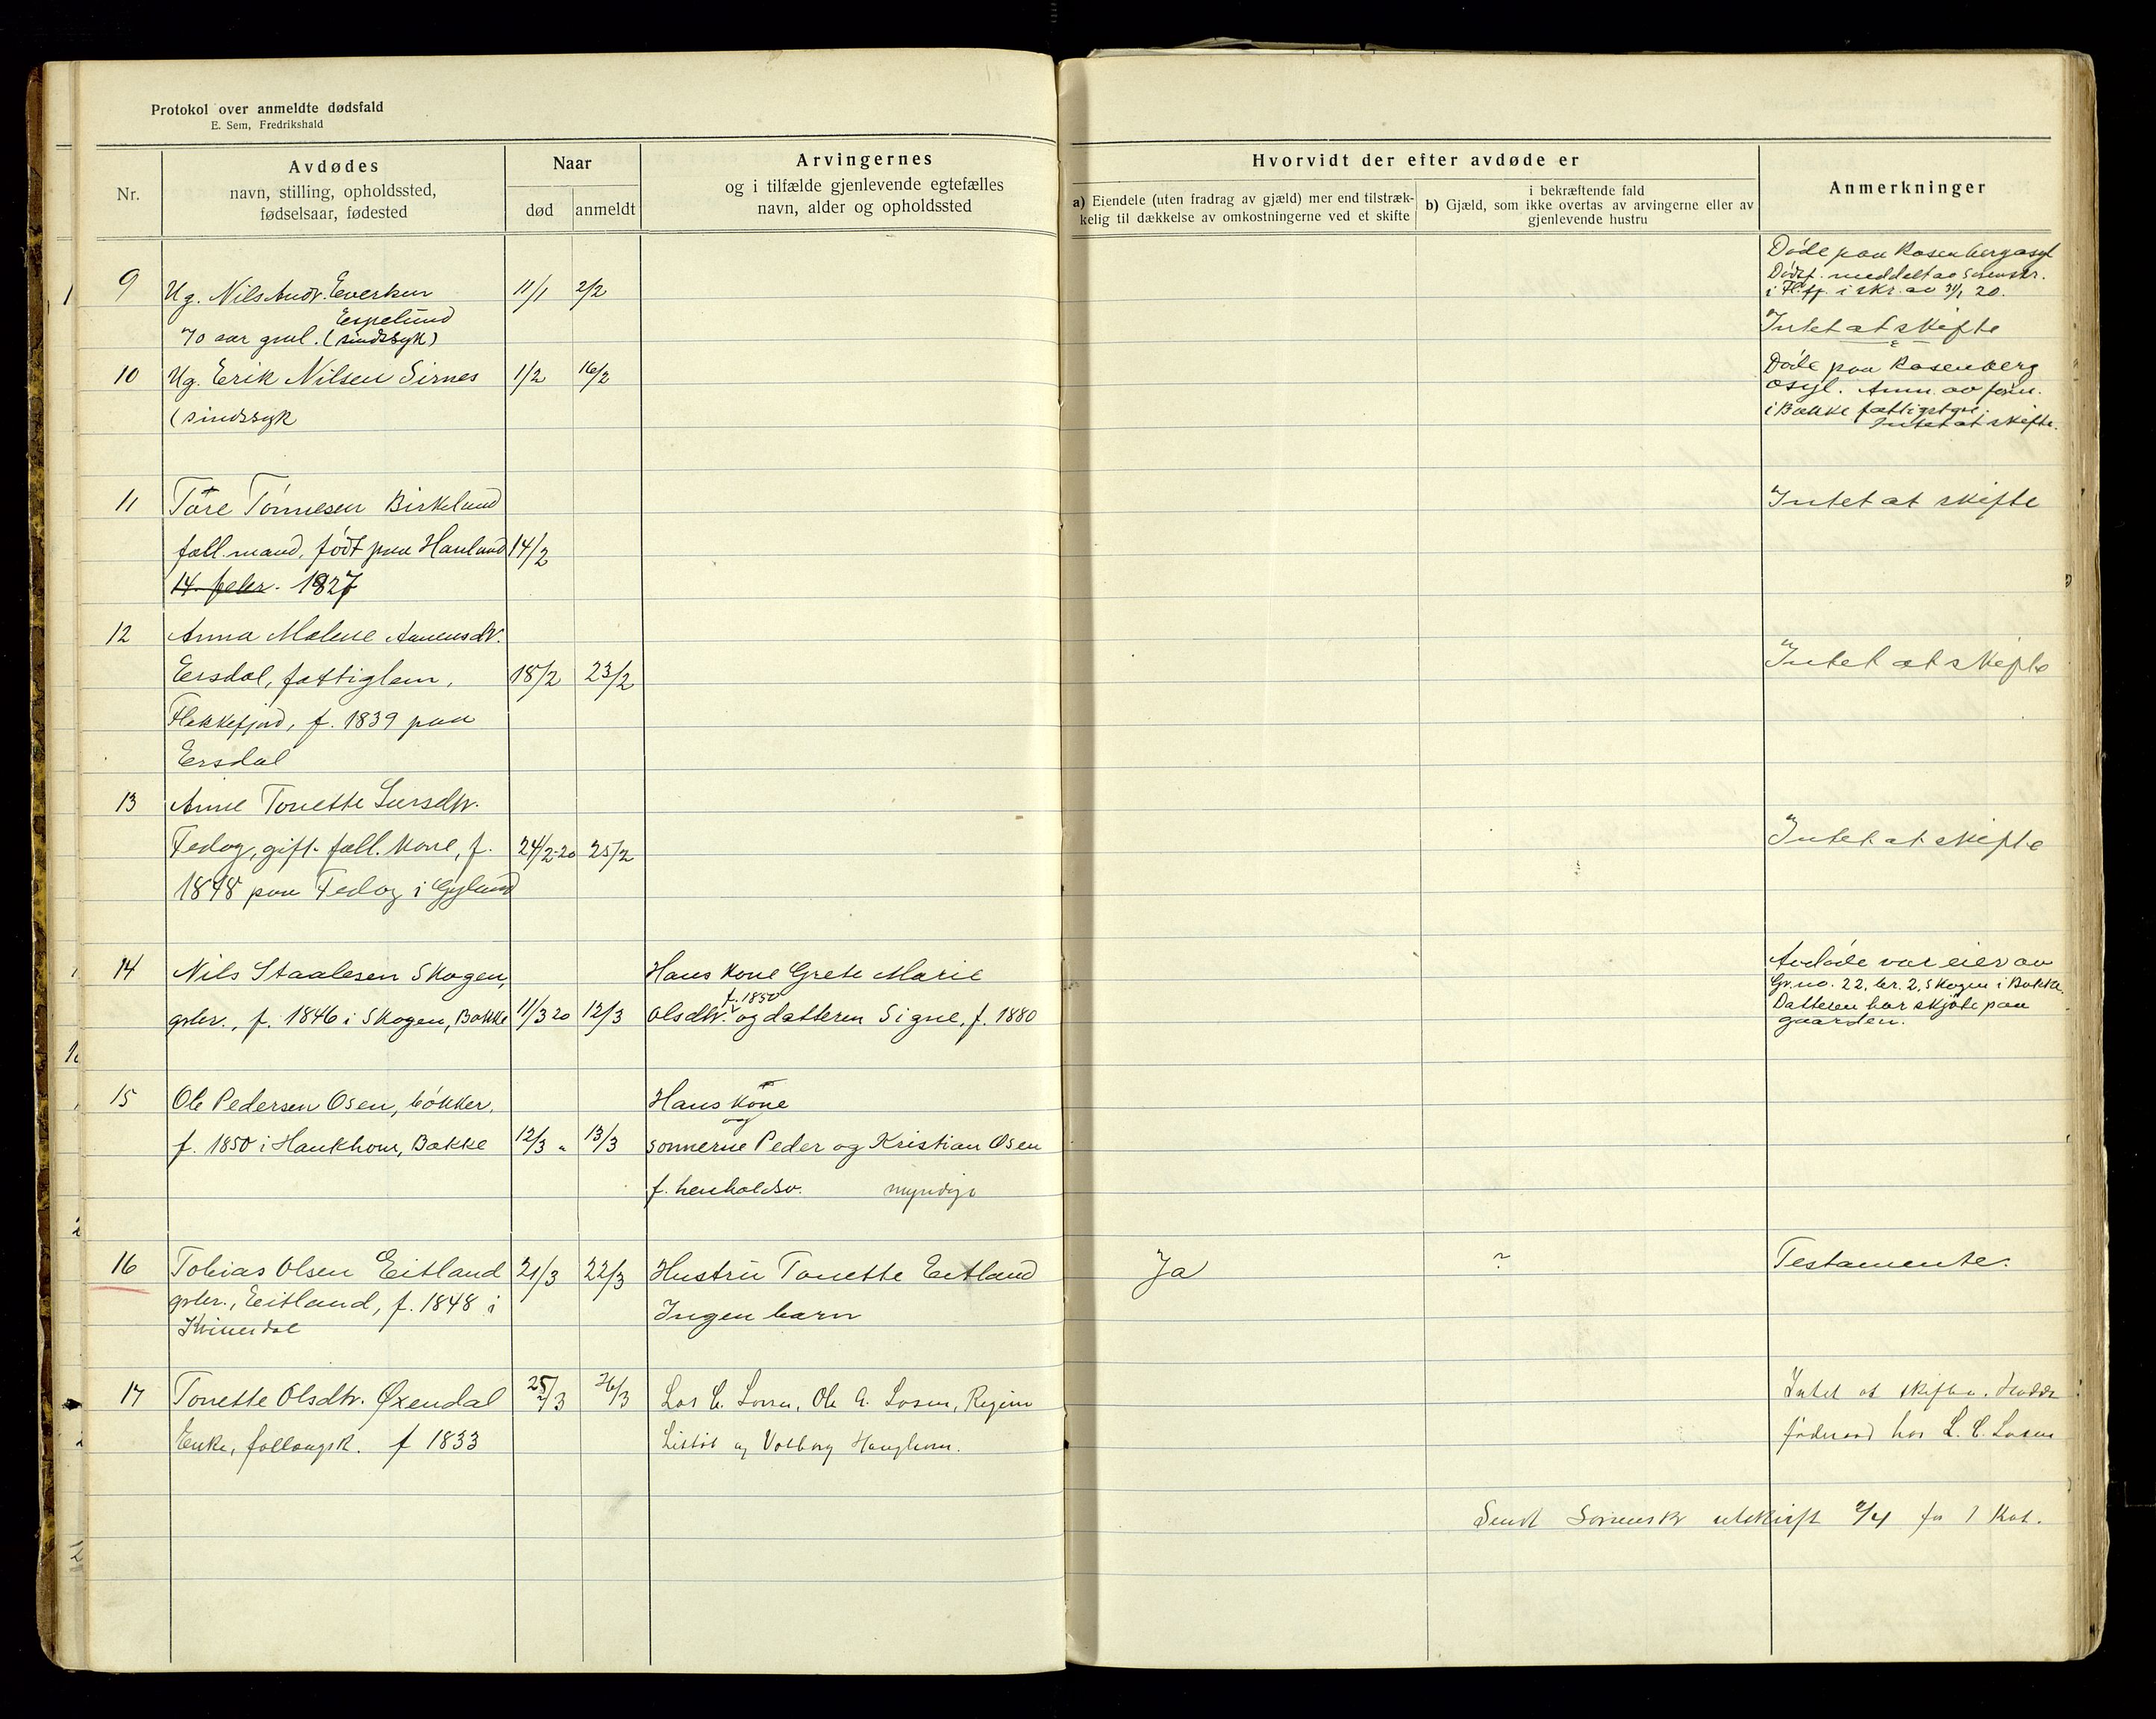 Protokol over anmeldte dødsfald
E. Sem, Fredrikshald
Nr.
Avdødes
navn, stilling, opholdssted,
fødselsaar, fødested
Naar
død
anmeldt
Arvingernes
og i tilfælde gjenlevende egtefælles
navn, alder og opholdssted
Hvorvidt der efter avdøde er
a) Eiendele (uten fradrag av gjæld) mer end tilstræk-
kelig til dækkelse av omkostningerne ved et skifte
i bekræftende fald
b) Gjæld, som ikke overtas av arvingerne eller av
gjenlevende hustru
Anmerkninger
9 Ug. Nils Andr. 11/1 2/2
Espelund
70 aar gml. (sindssyk)
Døde paa Rosenbergasyl
Dødsf. meddelt av Sorenskr.
i Fl.fj. i skr. av 31/1 20.
Intet at skifte
10 Ug. Erik Nilsen Sirnes 1/2 16/2
(sindssyk
Døde paa Rosenberg
asyl. Anm. av form.
i Bakke fattigstyre.
Intet at skifte.
11 Tore Tønnesen Birkeland
fall. mand, født paa Hauland 14/2
14. febr. 1827
Intet at skifte
12 Anna Malene Aanensdtr.
Eersdal, fattiglem, 18/2 23/2
Flekkefjord, f. 1839 paa
Eersdal
Intet at skifte
13 Anne Tonette Larsdtr.
Fedog, gift fall. kone, f. 24/2-20 25/2
1848 paa Fedog i Gyland
Intet at skifte
14 Nils Staalesen Skogen, Hans kone Grete Marie
gbr., f. 1846 i Skogen, Bakke 11/3 20 12/3 Olsdtr. f. 1850 og datteren Signe, f. 1880
Avdøde var eier av
Gr.no. 22, br. 2, Skogen i Bakke.
Datteren har skjøte paa
gaarden.
15 Ole Pedersen Osen, bøkker, Hans kone
og
f. 1850 i Haukhom, Bakke 12/3 " 13/3 sønnerne Peder og Kristian Osen
f. henholdsv. myndige
16 Tobias Olsen Eitland 21/3 22/3 Hustru Tonette Eitland Ja ? Testamente.
gbr., Eitland, f. 1848 i Ingen barn
Kvinesdal
17 Tonette Olsdtr. Øxendal 25/3 26/3 Lars C. Losen, Ole A. Losen, Regine
Enke, follougsk. f 1833 og Valborg Haughom.
Intet at skifte. Hadde
føderaad hos L. C. Losen
Sendt Sorenskr utskrift 2/4 for 1 Kvt.